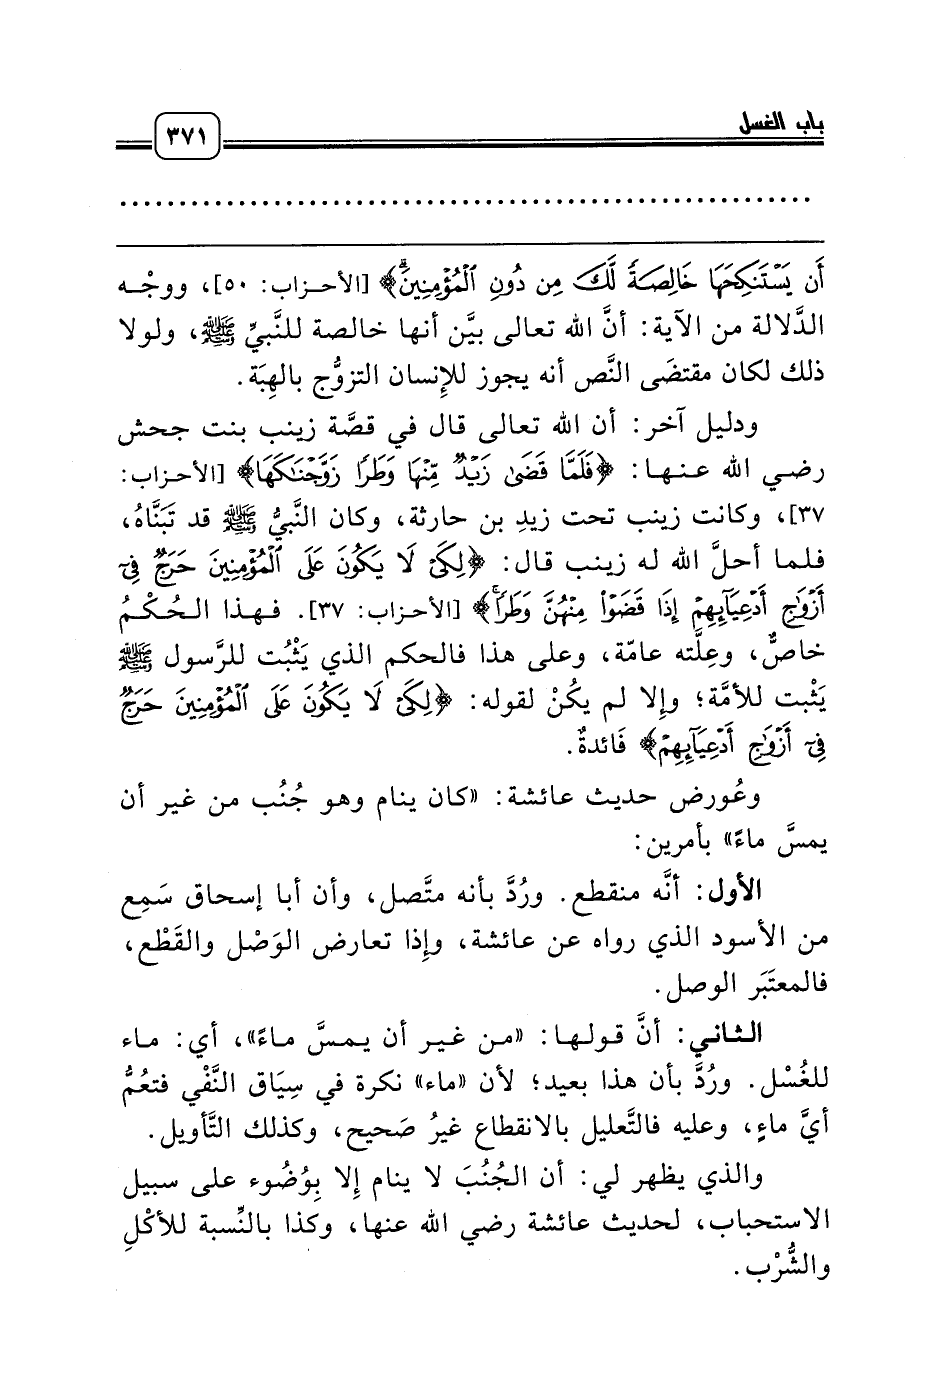 باب الغسل
٣٧١
أَن يَسْتَنكِحَهَا خَالِصَةً لَّكَ مِن دُونِ ٱلْمُؤْمِنِينَۗ﴾ [الأحزاب: ٥٠]، ووجْه
الدَّلالة من الآية: أنَّ الله تعالى بيَّن أنها خالصة للنَّبيِّ ﷺ، ولولا
ذلك لكان مقتضَى النَّص أنه يجوز للإنسان التزوُّج بالهِبَة.
ودليل آخر: أن الله تعالى قال في قصَّة زينب بنت جحش
رضي الله عنها: ﴿فَلَمَّا قَضَىٰ زَيْدٌ مِّنْهَا وَطَرًا زَوَّجْنَٰكَهَا﴾ [الأحزاب:
٣٧]، وكانت زينب تحت زيدِ بن حارثة، وكان النَّبيُّ ﷺ قد تَبَنَّاهُ،
فلما أحلَّ الله له زينب قال: ﴿لِكَىْ لَا يَكُونَ عَلَى ٱلْمُؤْمِنِينَ حَرَجٌ فِىٓ
أَزْوَٰجِ أَدْعِيَآئِهِمْ إِذَا قَضَوْا۟ مِنْهُنَّ وَطَرًاۚ﴾ [الأحزاب: ٣٧]. فهذا الحُكْمُ
خاصٌّ، وعِلَّته عامّة، وعلى هذا فالحكم الذي يَثْبُت للرَّسول ﷺ
يَثْبت للأمَّة؛ وإلا لم يكُنْ لقوله: ﴿لِكَىْ لَا يَكُونَ عَلَى ٱلْمُؤْمِنِينَ حَرَجٌ
فِىٓ أَزْوَٰجِ أَدْعِيَآئِهِمْ﴾ فَائدةٌ.
وعُورض حديث عائشة: «كان ينام وهو جُنُب من غير أن
يمسَّ ماءً» بأمرين:
الأول: أنَّه منقطع. ورُدَّ بأنه متَّصل، وأن أبا إسحاق سَمِع
من الأسود الذي رواه عن عائشة، وإذا تعارض الوَصْل والقَطْع،
فالمعتبَر الوصل.
الثاني: أنَّ قولها: «من غير أن يمسَّ ماءً»، أي: ماء
للغُسْل. ورُدَّ بأن هذا بعيد؛ لأن «ماء» نكرة في سِيَاق النَّفْي فتعُمُّ
أيَّ ماءٍ، وعليه فالتَّعليل بالانقطاع غيرُ صَحيح، وكذلك التَّأويل.
والذي يظهر لي: أن الجُنُبَ لا ينام إلا بِوُضُوء على سبيل
الاستحباب، لحديث عائشة رضي الله عنها، وكذا بالنِّسبة للأكْلِ
والشُّرْب.